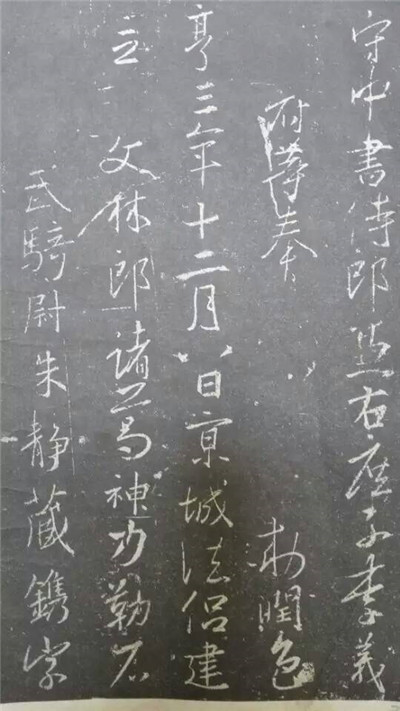 守中書侍郎兼右庶子李義
府等奉 勅潤色
亨三年十二月八日京城法侶建
立 文林郎諸葛神力勒石
武騎尉朱靜藏鐫字